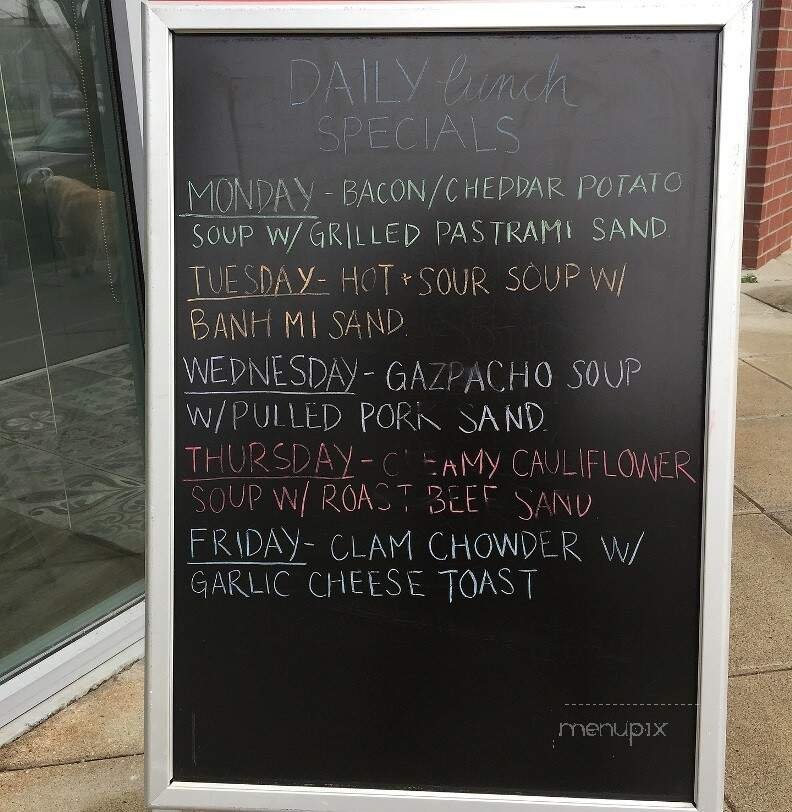 DAILY lunch
SPECIALS
MONDAY - BACON/CHEDDAR POTATO
SOUP W/ GRILLED PASTRAMI SAND.
TUESDAY - HOT + SOUR SOUP W/
BANH MI SAND.
WEDNESDAY - GAZPACHO SOUP
W/ PULLED PORK SAND.
THURSDAY - CREAMY CAULIFLOWER
SOUP W/ ROAST BEEF SAND
FRIDAY - CLAM CHOWDER W/
GARLIC CHEESE TOAST
menupix